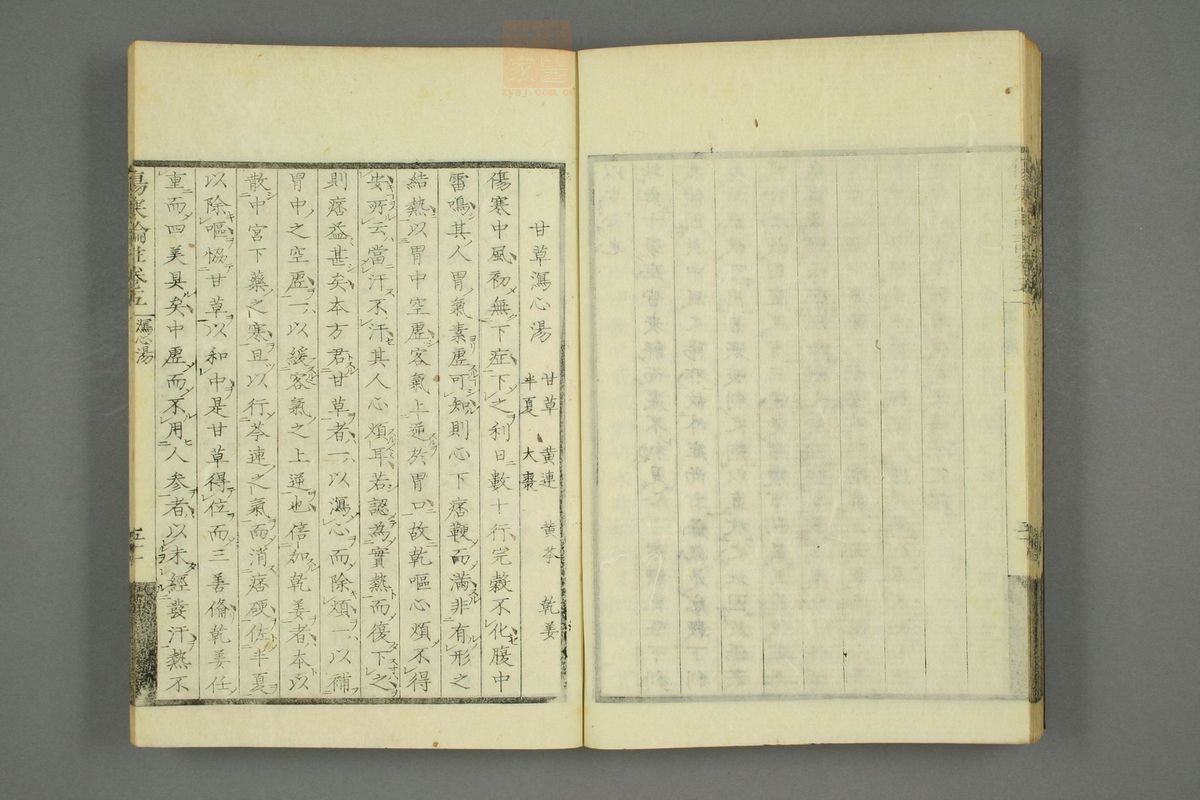 甘草瀉心湯 甘草 黄連 黄芩 乾姜
半夏 大棗
傷寒中風初無下症下之利日數十行完穀不化腹中
雷鳴其人胃氣素虛可知則心下痞鞕而滿非有形之
結熱以胃中空虛客氣上逆於胃口故乾嘔心煩不得
安所云當汗不汗其人心煩耳若認為實熱而復下之
則痞益甚矣本方君甘草者一以瀉心而除煩一以補
胃中之空虛一以緩客氣之上逆也倍加乾姜者本以
散中宮下藥之寒且以行芩連之氣而消痞硬佐半夏
以除嘔恊甘草以和中是甘草得位而三善備乾姜任
重而四美具矣中虛而不用人參者以未經發汗熱不
傷寒論註卷五 瀉心湯